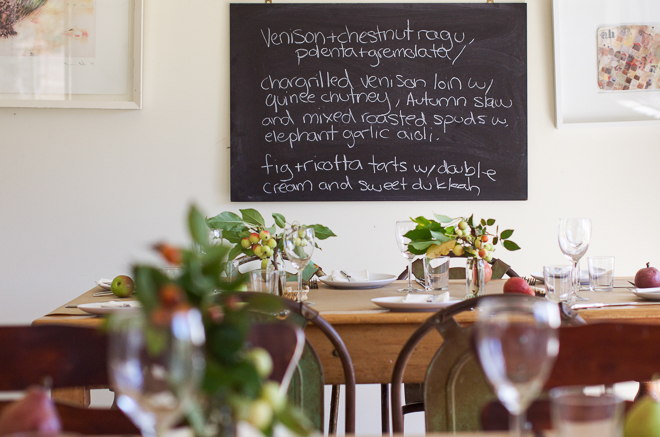 Venison+chestnut ragu,
polenta+gremolata,/
chargrilled venison loin w/
quince chutney, Autumn slaw
and mixed roasted spuds w.
elephant garlic aioli.
fig+ricotta tarts w/double
cream and sweet dukkah